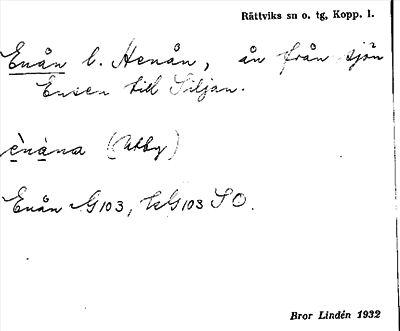 Rättviks sn o. tg, Kopp. l.
Enån l. Henån, ån från sjön
Ensen till Siljan.
ènàna (Utby)
Enån G103, kG103 SO.
Bror Lindén 1932